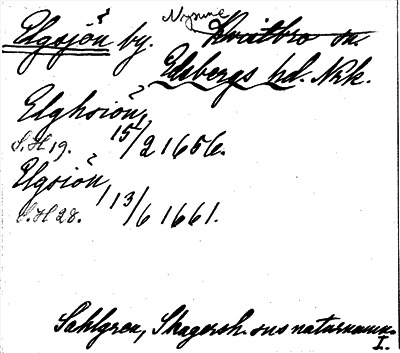 Nysund
Elgsjön by. Kvistbro sn.
Edsbergs hd. Nrk.
Elghsiön,
S.H 19. 15/2 1656.
Elgsiön,
S.H 28. 13/6 1661.
Sahlgren, Skagersh. sns naturnamn.
I.